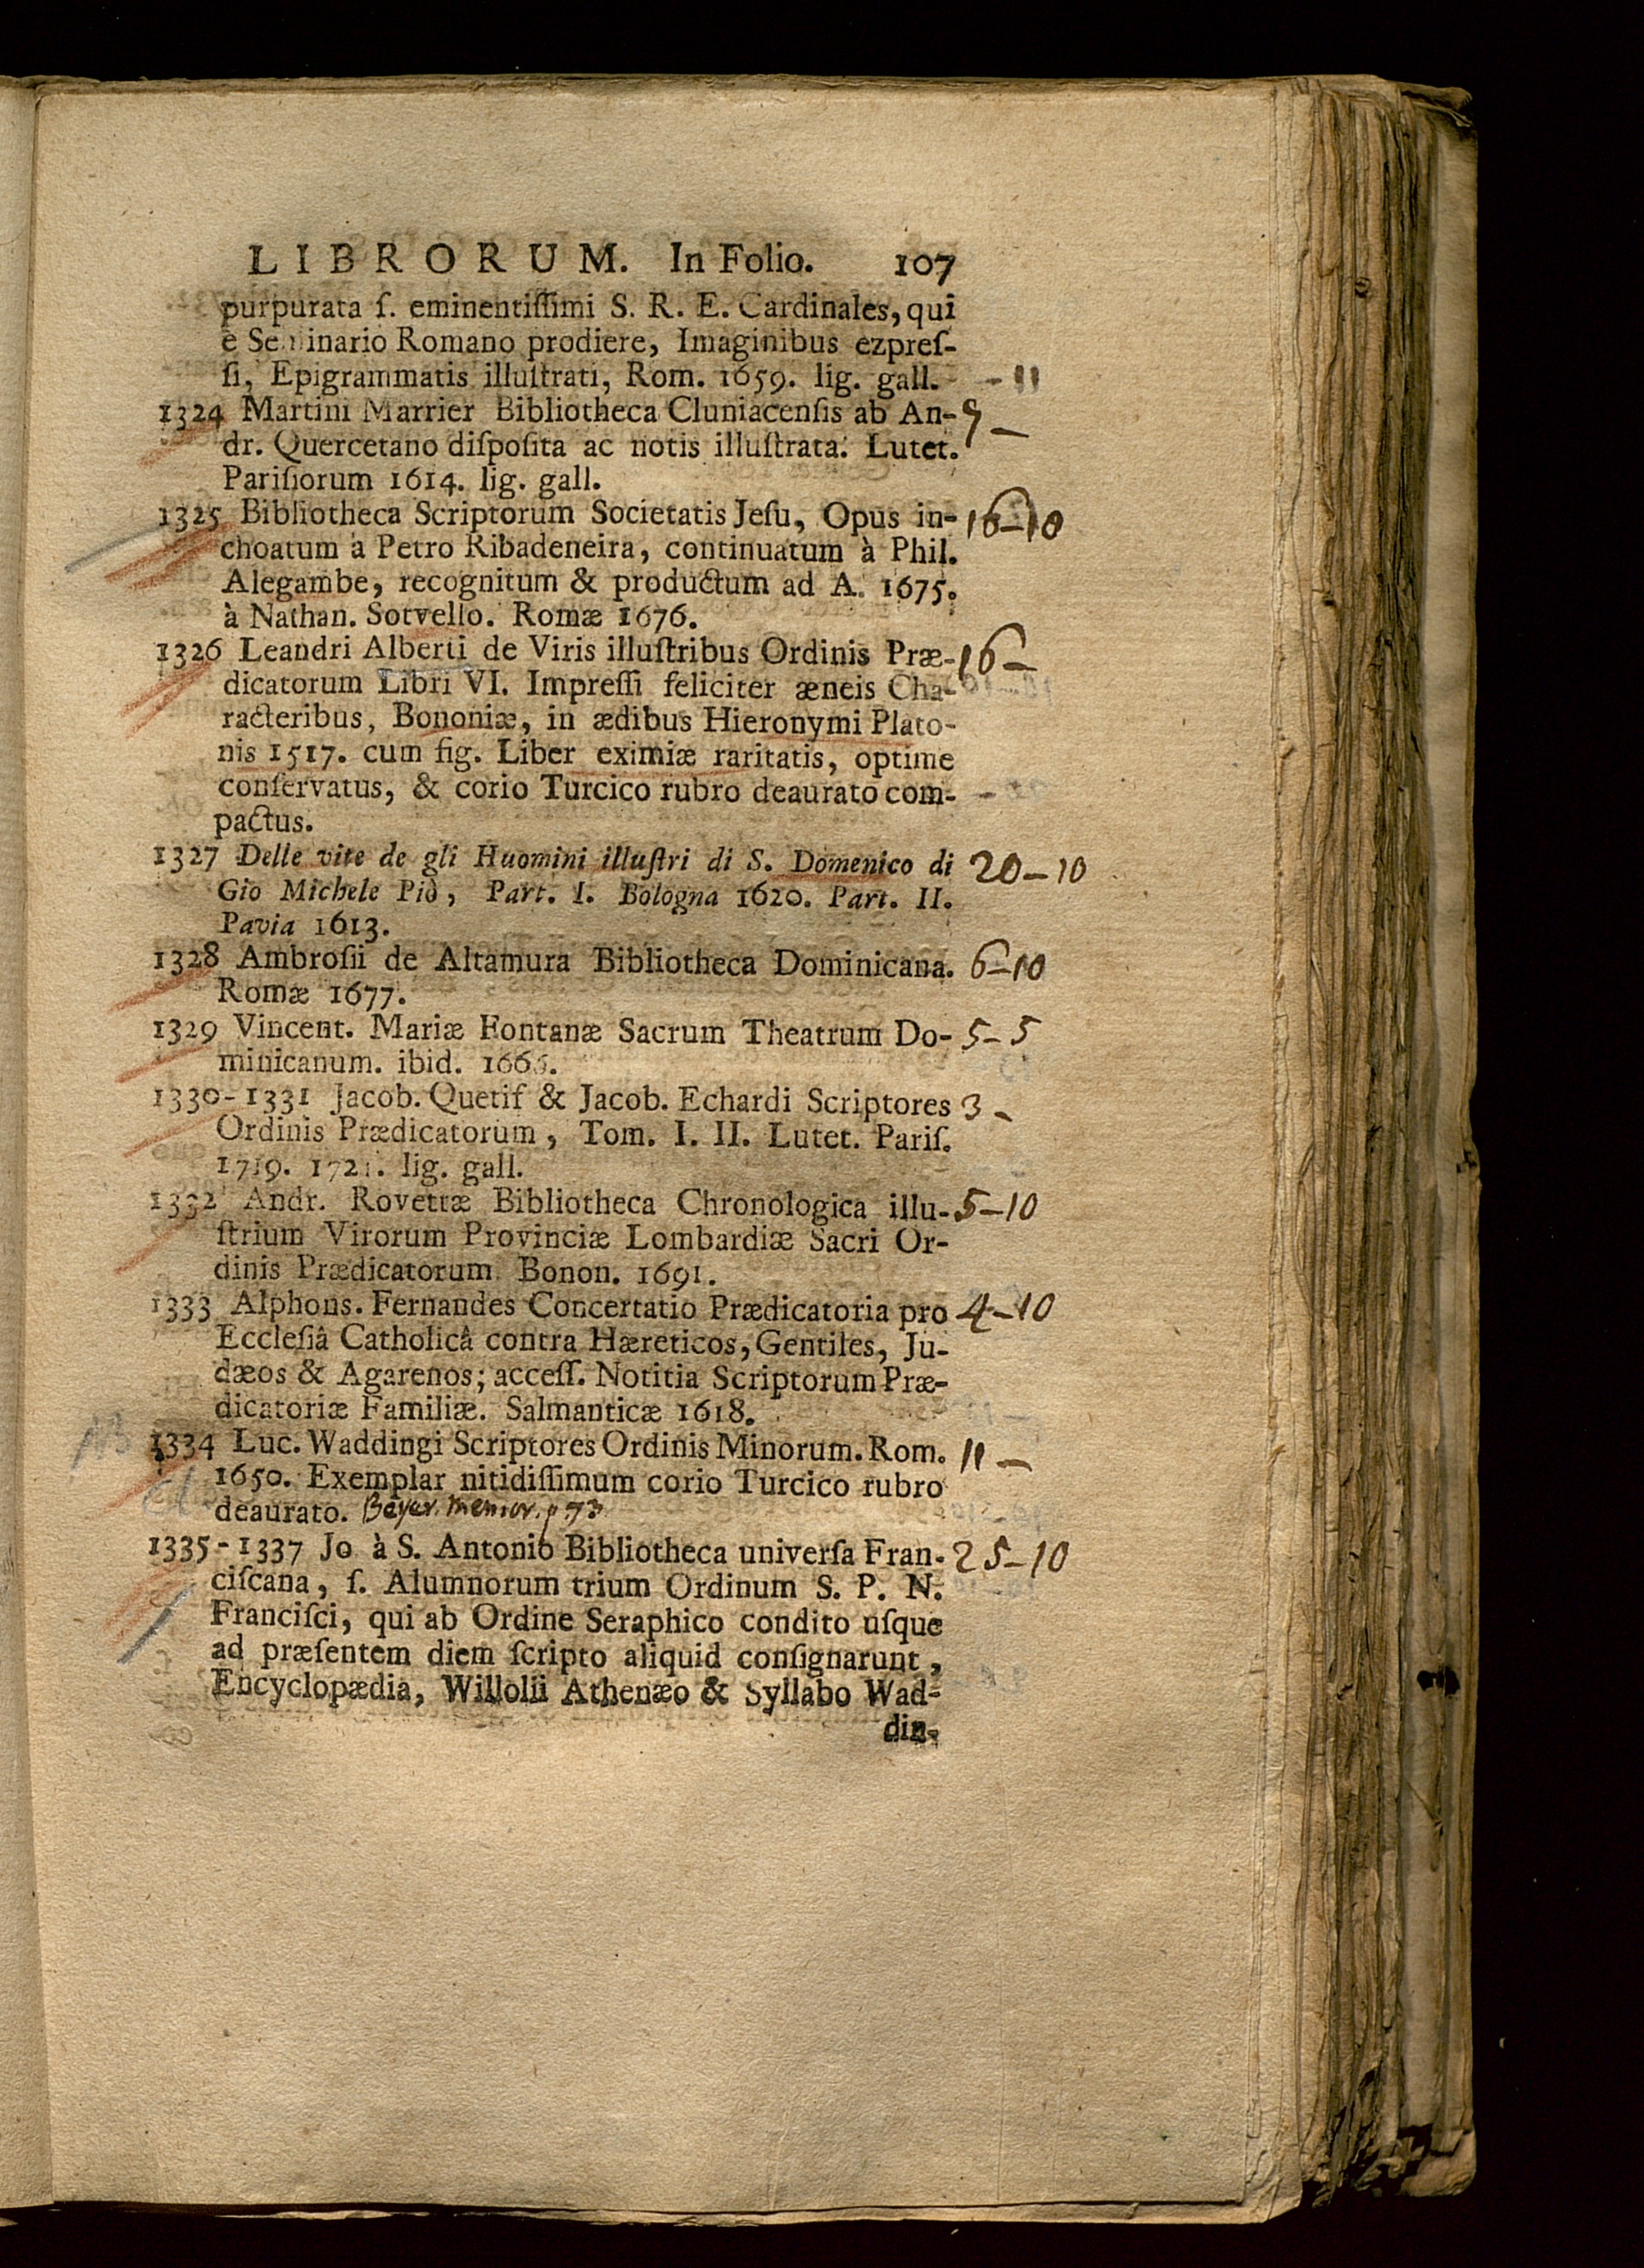 LIBRORUM. In Folio. 107
purpurata ſ. eminentiſſimi S. R. E. Cardinales, qui
è Seminario Romano prodiere, Imaginibus ezpreſ-
ſi, Epigrammatis illuſtrati, Rom. 1659. lig. gall. - 11
1324 Martini Marrier Bibliotheca Cluniacenſis ab An- 9 -
dr. Quercetano diſpoſita ac notis illuſtrata. Lutet.
Pariſiorum 1614. lig. gall.
1325 Bibliotheca Scriptorum Societatis Jeſu, Opus in- 16-10
choatum à Petro Ribadeneira, continuatum à Phil.
Alegambe, recognitum & productum ad A. 1675.
à Nathan. Sotvello. Romæ 1676.
1326 Leandri Alberti de Viris illuſtribus Ordinis Præ- 16 -
dicatorum Libri VI. Impreſſi feliciter æneis Cha-
racteribus, Bononiæ, in ædibus Hieronymi Plato-
nis 1517. cum fig. Liber eximiæ raritatis, optime
conſervatus, & corio Turcico rubro deaurato com-
pactus.
1327 Delle vite de gli Huomini illuſtri di S. Domenico di 20-10
Gio Michele Piò, Part. I. Bologna 1620. Part. II.
Pavia 1613.
1328 Ambroſii de Altamura Bibliotheca Dominicana. 6-10
Romæ 1677.
1329 Vincent. Mariæ Fontanæ Sacrum Theatrum Do- 5-5
minicanum. ibid. 1666.
1330-1331 Jacob. Quetif & Jacob. Echardi Scriptores 3 -
Ordinis Prædicatorum, Tom. I. II. Lutet. Pariſ.
1719. 1721. lig. gall.
1332 Andr. Rovettæ Bibliotheca Chronologica illu- 5-10
ſtrium Virorum Provinciæ Lombardiæ Sacri Or-
dinis Prædicatorum Bonon. 1691.
1333 Alphons. Fernandes Concertatio Prædicatoria pro 4-10
Eccleſiâ Catholicâ contra Hæreticos, Gentiles, Ju-
dæos & Agarenos; acceſſ. Notitia Scriptorum Præ-
dicatoriæ Familiæ. Salmanticæ 1618.
NB 1334 Luc. Waddingi Scriptores Ordinis Minorum. Rom. 11 -
1650. Exemplar nitidiſſimum corio Turcico rubro
deaurato. Beyer. memor. p. 73
1335-1337 Jo à S. Antonio Bibliotheca univerſa Fran- 25-10
ciſcana, ſ. Alumnorum trium Ordinum S. P. N.
Franciſci, qui ab Ordine Seraphico condito uſque
ad præſentem diem ſcripto aliquid conſignarunt,
Encyclopædia, Willolii Athenæo & Syllabo Wad-
din-